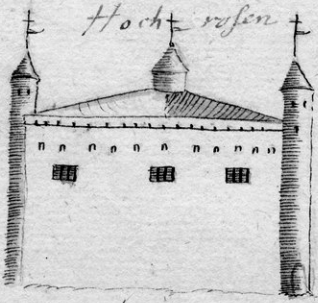 Hoch rosen